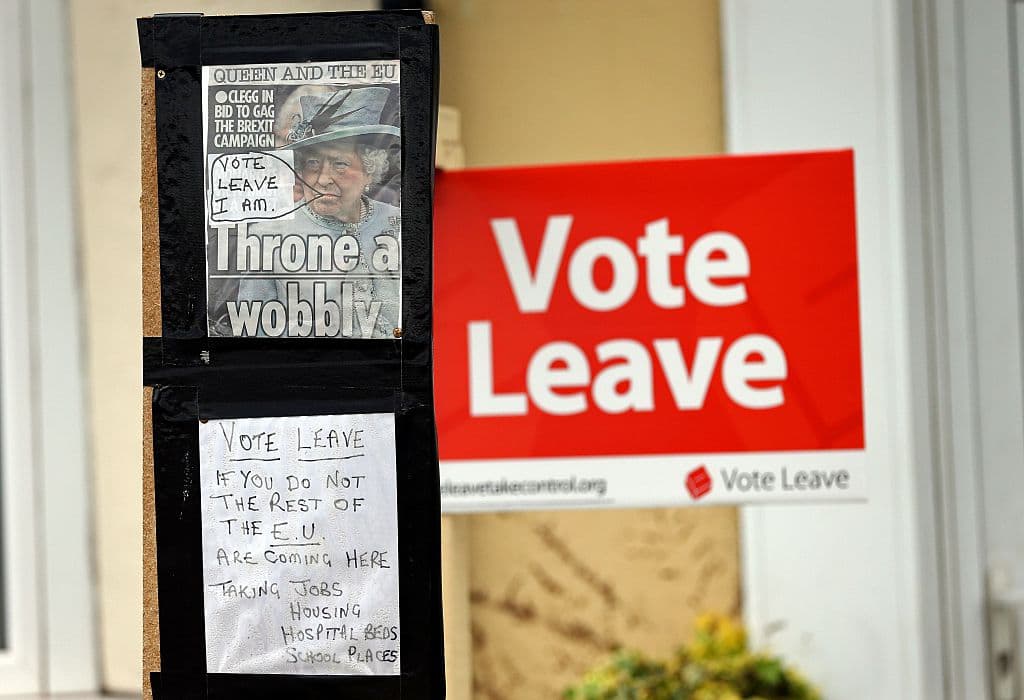 QUEEN AND THE EU
●CLEGG IN
BID TO GAG
THE BREXIT
CAMPAIGN
VOTE
LEAVE
I AM.
Throne a
wobbly
VOTE LEAVE
IF YOU DO NOT
THE REST OF
THE E.U.
ARE COMING HERE
TAKING JOBS
HOUSING
HOSPITAL BEDS
SCHOOL PLACES
Vote
Leave
leavetakecontrol.org
Vote Leave